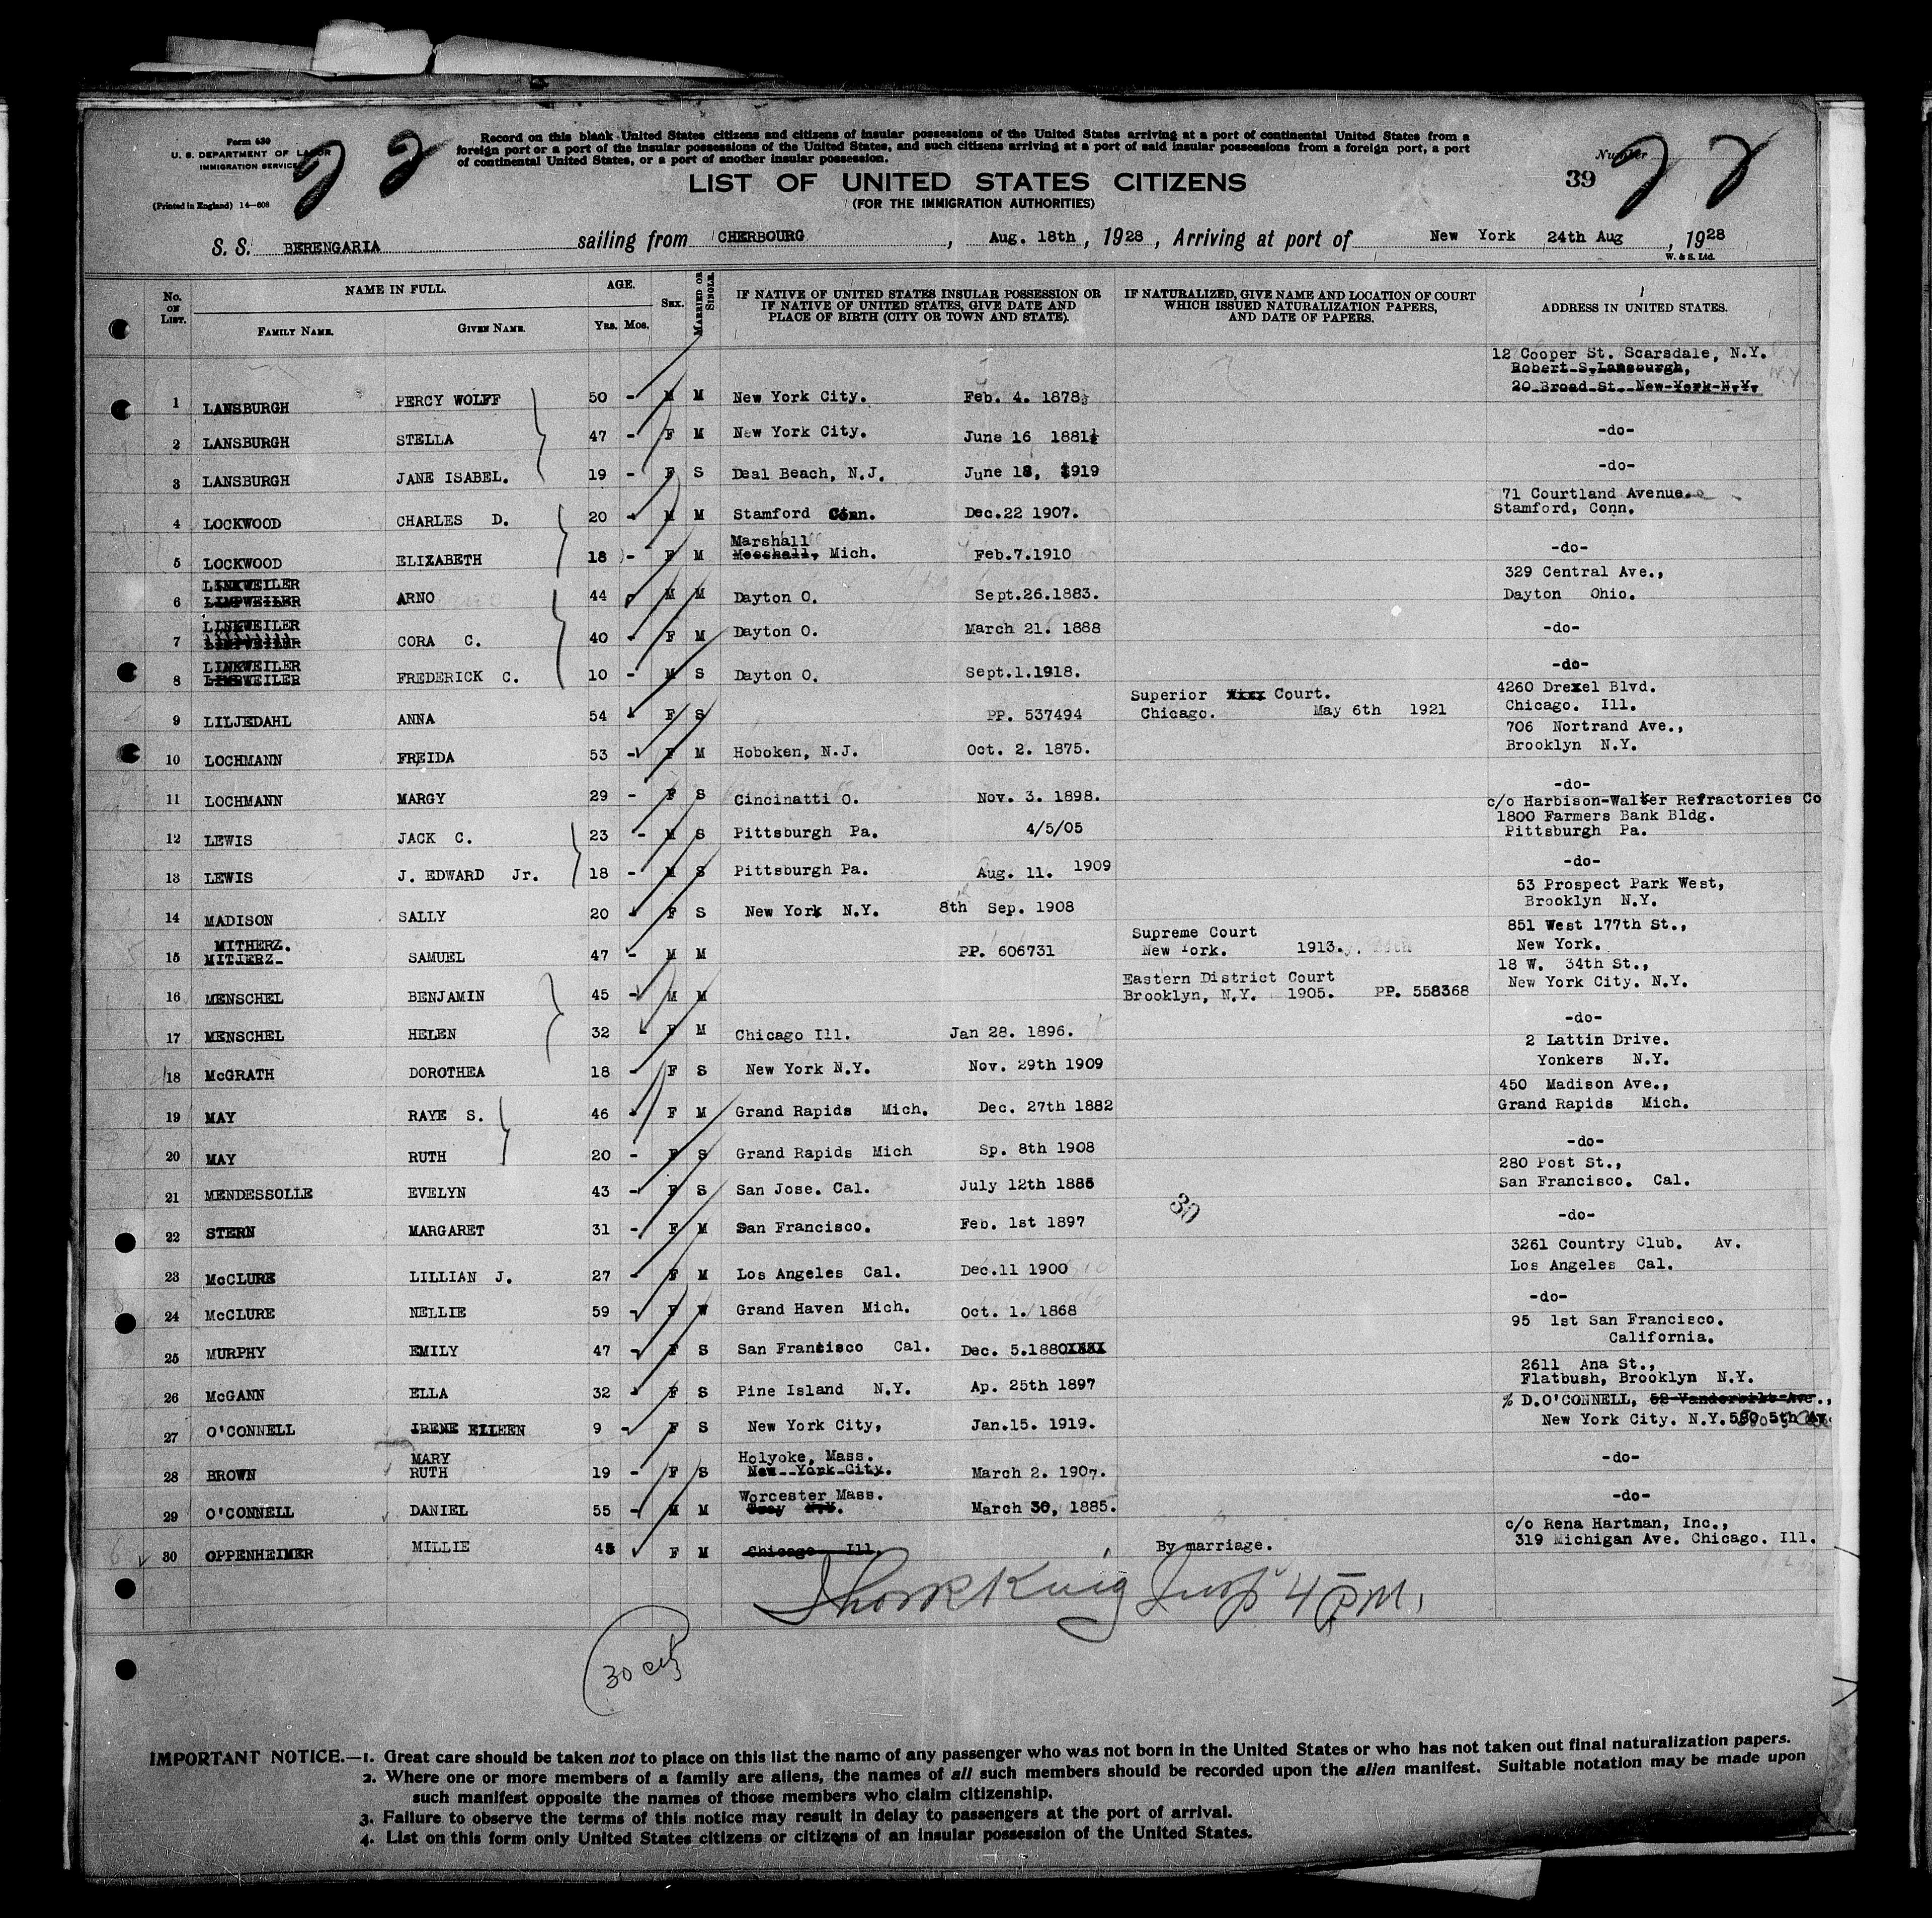 Form 630
U. S. DEPARTMENT OF LABOR
IMMIGRATION SERVICE
(Printed in England) 14—608
22
Record on this blank United States citizens and citizens of insular possessions of the United States arriving at a port of continental United States from a
foreign port or a port of the insular possessions of the United States, and such citizens arriving at a port of said insular possessions from a foreign port, a port
of continental United States, or a port of another insular possession.
LIST OF UNITED STATES CITIZENS
(FOR THE IMMIGRATION AUTHORITIES)
Number
39 22
S. S. BERENGARIA sailing from CHERBOURG, Aug. 18th, 1928, Arriving at port of New York 24th Aug, 1928
W. & S. Ltd.
No. ON LIST.
NAME IN FULL.
FAMILY NAME. GIVEN NAME.
AGE.
YRS. MOS.
SEX.
MARRIED OR SINGLE.
IF NATIVE OF UNITED STATES INSULAR POSSESSION OR
IF NATIVE OF UNITED STATES, GIVE DATE AND
PLACE OF BIRTH (CITY OR TOWN AND STATE).
IF NATURALIZED, GIVE NAME AND LOCATION OF COURT
WHICH ISSUED NATURALIZATION PAPERS,
AND DATE OF PAPERS.
ADDRESS IN UNITED STATES.
12 Cooper St. Scarsdale, N.Y.
Robert S. Lansburgh,
20 Broad St. New York N.Y.
1 LANSBURGH PERCY WOLFF 50 - M M New York City. Feb. 4. 1878
2 LANSBURGH STELLA 47 - F M New York City. June 16 1881 -do-
3 LANSBURGH JANE ISABEL. 19 - F S Deal Beach, N.J. June 18, 1919 -do-
71 Courtland Avenue.
4 LOCKWOOD CHARLES D. 20 - M M Stamford Conn. Dec.22 1907. Stamford, Conn.
Marshall
5 LOCKWOOD ELIZABETH 18 - F M Mosshall, Mich. Feb.7.1910 -do-
LINKWEILER 329 Central Ave.,
6 LIMPWEILER ARNO 44 - M M Dayton O. Sept.26.1883. Dayton Ohio.
LINKWEILER
7 LIMPWEILER CORA C. 40 - F M Dayton O. March 21. 1888 -do-
LINKWEILER
8 LIMPWEILER FREDERICK C. 10 - M S Dayton O. Sept.1.1918. -do-
Superior Court. 4260 Drexel Blvd.
9 LILJEDAHL ANNA 54 - F S PP. 537494 Chicago. May 6th 1921 Chicago. Ill.
706 Nortrand Ave.,
10 LOCHMANN FREIDA 53 - F M Hoboken, N.J. Oct. 2. 1875. Brooklyn N.Y.
11 LOCHMANN MARGY 29 - F S Cincinatti O. Nov. 3. 1898. -do-
c/o Harbison-Walker Refractories Co
1800 Farmers Bank Bldg.
12 LEWIS JACK C. 23 - M S Pittsburgh Pa. 4/5/05 Pittsburgh Pa.
13 LEWIS J. EDWARD Jr. 18 - M S Pittsburgh Pa. Aug. 11. 1909 -do-
53 Prospect Park West,
14 MADISON SALLY 20 - F S New York N.Y. 8th Sep. 1908 Brooklyn N.Y.
MITHERZ. Supreme Court 851 West 177th St.,
15 MITJERZ- SAMUEL 47 - M M PP. 606731 New York. 1913. New York.
Eastern District Court 18 W. 34th St.,
16 MENSCHEL BENJAMIN 45 - M M Brooklyn, N.Y. 1905. PP. 558368 New York City. N.Y.
17 MENSCHEL HELEN 32 F M Chicago Ill. Jan 28. 1896. -do-
2 Lattin Drive.
18 McGRATH DOROTHEA 18 - F S New York N.Y. Nov. 29th 1909 Yonkers N.Y.
450 Madison Ave.,
19 MAY RAYE S. 46 - F M Grand Rapids Mich. Dec. 27th 1882 Grand Rapids Mich.
20 MAY RUTH 20 - F S Grand Rapids Mich Sp. 8th 1908 -do-
280 Post St.,
21 MENDESSOLLE EVELYN 43 - F S San Jose. Cal. July 12th 1885 San Francisco. Cal.
30
22 STERN MARGARET 31 - F M San Francisco. Feb. 1st 1897 -do-
3261 Country Club. Av.
23 McCLURE LILLIAN J. 27 - F M Los Angeles Cal. Dec.11 1900 Los Angeles Cal.
24 McCLURE NELLIE 59 - F W Grand Haven Mich. Oct. 1. 1868 -do-
95 1st San Francisco.
25 MURPHY EMILY 47 - F S San Francisco Cal. Dec. 5.1880XXXX California.
2611 Ana St.,
26 McGANN ELLA 32 - F S Pine Island N.Y. Ap. 25th 1897 Flatbush, Brooklyn N.Y.
% D.O'CONNELL, 52 Vanderbilt Ave.,
27 O'CONNELL IRENE EILEEN 9 - F S New York City, Jan.15. 1919. New York City. N.Y. 580 5th Av.
MARY Holyoke, Mass.
28 BROWN RUTH 19 - F S New York City. March 2. 1907. -do-
Worcester Mass.
29 O'CONNELL DANIEL 55 - M M Troy N.Y. March 30, 1885. -do-
c/o Rena Hartman, Inc.,
30 OPPENHEIMER MILLIE 45 F M Chicago Ill. By marriage. 319 Michigan Ave. Chicago. Ill.
King Insp 4 PM.
30
IMPORTANT NOTICE.—1. Great care should be taken not to place on this list the name of any passenger who was not born in the United States or who has not taken out final naturalization papers.
2. Where one or more members of a family are aliens, the names of all such members should be recorded upon the alien manifest. Suitable notation may be made upon
such manifest opposite the names of those members who claim citizenship.
3. Failure to observe the terms of this notice may result in delay to passengers at the port of arrival.
4. List on this form only United States citizens or citizens of an insular possession of the United States.